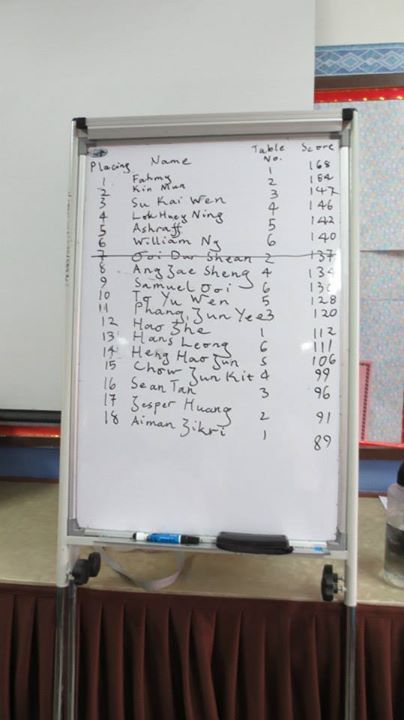 Placing Name Table No. Score
1 Fahmy 1 168
2 Kin Mun 2
3 Su Kai Wen 3 147
4 Lok Huey Ning 4 146
5 Ashraff 5 142
6 William Ng 6 140
7 Ooi Dar Shean 2 137
8 Ang Jae Sheng 4 134
9 Samuel Ooi 6 130
10 To Yu Wen 5 128
11 Phang Jun Yee 3 120
12 Hao Zhe 1 112
13 Hans Leong 6 111
14 Heng Hao Jun 5 106
15 Chow Jun Kit 4 99
16 Sean Tan 3 96
17 Jesper Huang 2 91
18 Aiman Zikri 1 89